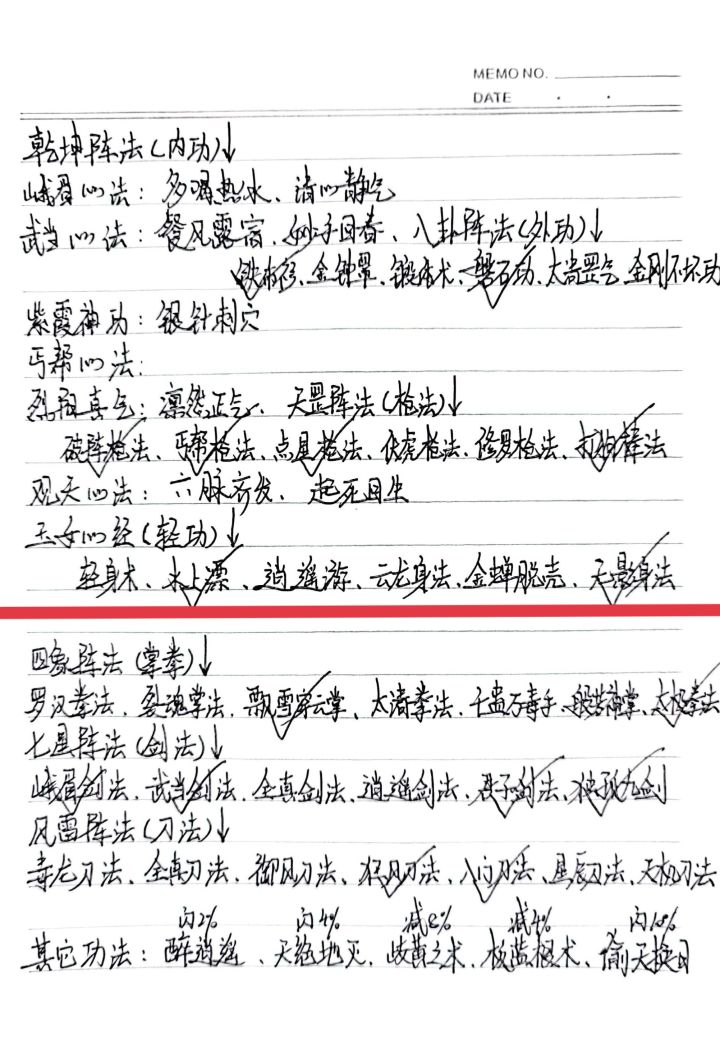 MEMO NO.
DATE . .
乾坤阵法(内功)↓
峨眉心法: 多喝热水、清心静气
武当心法: 餐风露宿、妙手回春、八卦阵法(外功)↓
铁布衫、金钟罩、锻体术、磐石功、太岩罡气、金刚不坏功
紫霞神功: 银针刺穴
丐帮心法:
烈阳真气: 凛然正气、天罡阵法(枪法)↓
破阵枪法、丐帮枪法、点星枪法、伏虎枪法、修罗枪法、打狗棒法
观天心法: 六脉齐发、起死回生
玉女心经(轻功)↓
轻身术、水上漂、逍遥游、云龙身法、金蝉脱壳、天影身法
四象阵法(掌拳)↓
罗汉拳法、裂魂掌法、飘雪穿云掌、太清拳法、千蛊万毒手、般若神掌、太极拳法
七星阵法(剑法)↓
峨眉剑法、武当剑法、全真剑法、逍遥剑法、君子剑法、独孤九剑
风雷阵法(刀法)↓
毒龙刀法、全真刀法、御风刀法、狂风刀法、八门刀法、星辰刀法、天机刀法
内2% 内4% 减8% 减4% 内10%
其它功法: 醉逍遥、天绝地灭、岐黄之术、板蓝根术、偷天换日